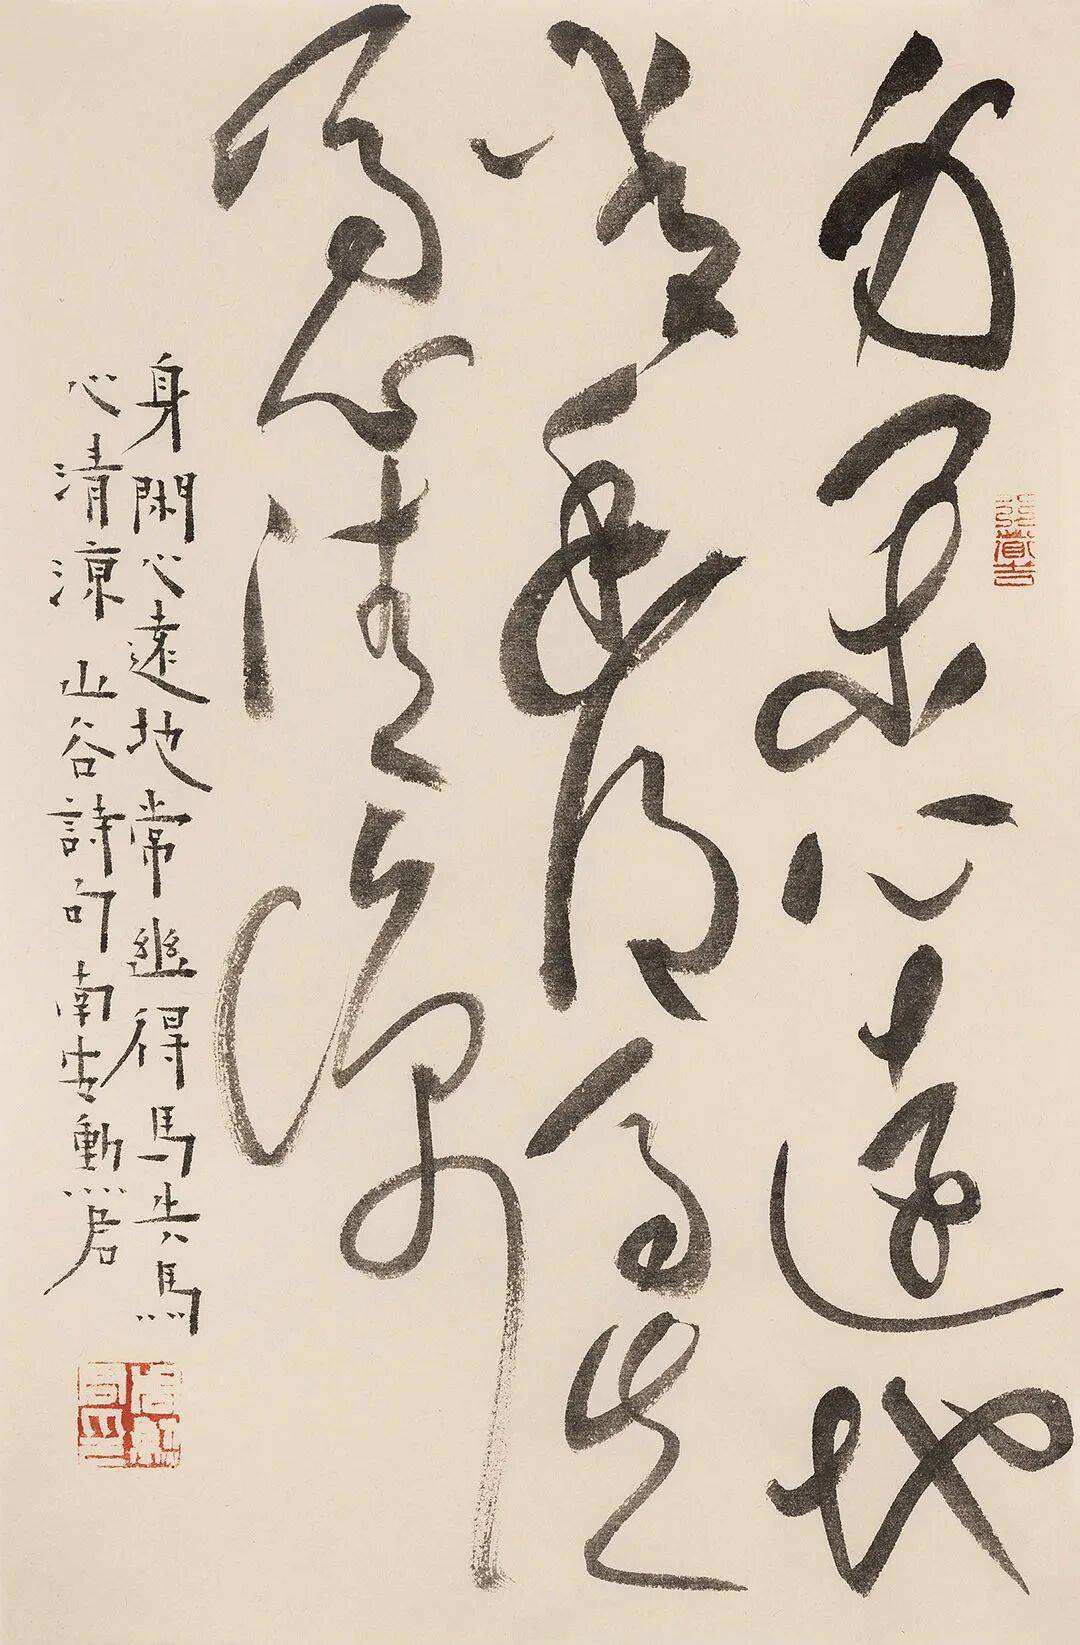 身閑心遠地
常幽得馬失
馬心清涼
身閑心遠地常幽得馬失馬
心清涼 山谷詩句 南安勲君